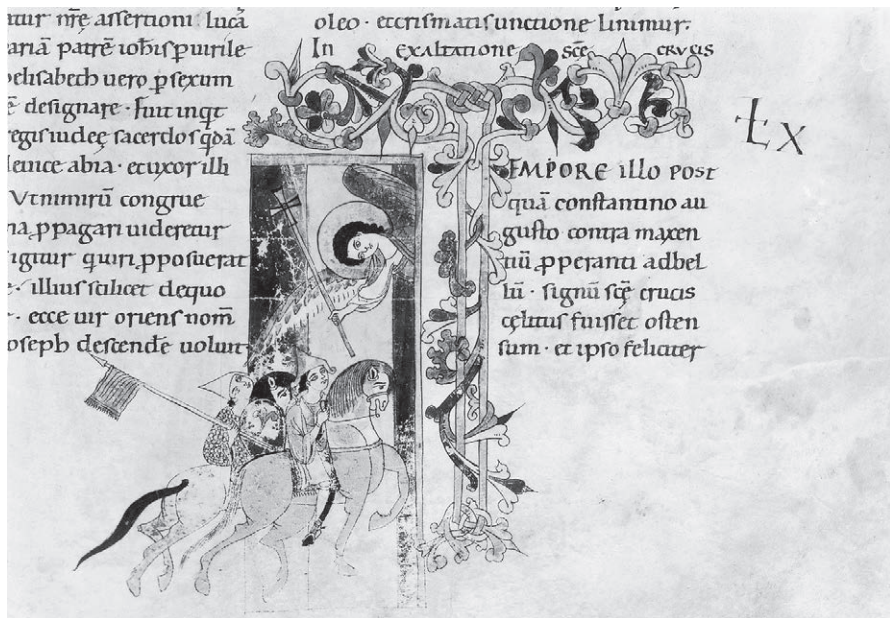 atur nr̃e assertioni lucã
ariã patrẽ iohĩs puirile
elisabeth uero psexum
ẽ designare · fuit inqt
regis iudeę sacerdos qdã
deuice abia · et uxor illi
Vt nimirũ congrue
na ppagari uideretur
igitur pposuerat
e · illius scilicet dequo
· ecce uir oriens nom̃
oseph descendẽ uoluit
oleo · et crismatis unctione linimur.
In EXALTATIONE SCE CRVCIS
TEMPORE illo post
quã constantino au
gusto contra maxen
tiũ pperanti adbel
lũ · signũ scę crucis
cęlitus fuisset osten
sum · et ipso feliciter